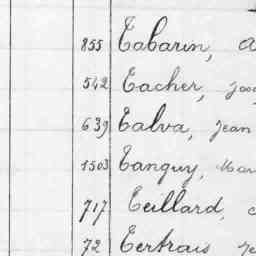 855 Tabarin,
542 Tacher,
639 Talva, Jean
1503 Tanguy,
717 Teillard,
72 Tertrais